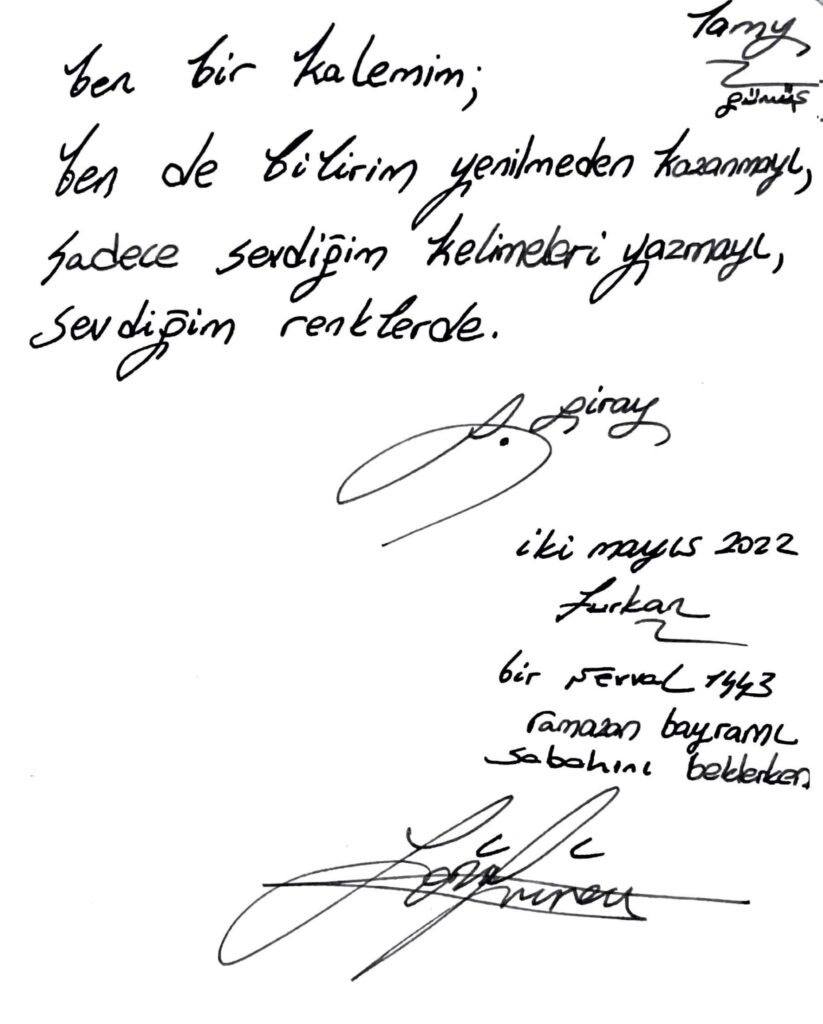 Lamy
gümüş
ben bir kalemim;
ben de bilirim yenilmeden kazanmayı,
sadece sevdiğim kelimeleri yazmayı,
sevdiğim renklerde.
giray
iki mayıs 2022
furkan
bir şevval 1443
ramazan bayramı
sabahını beklerken